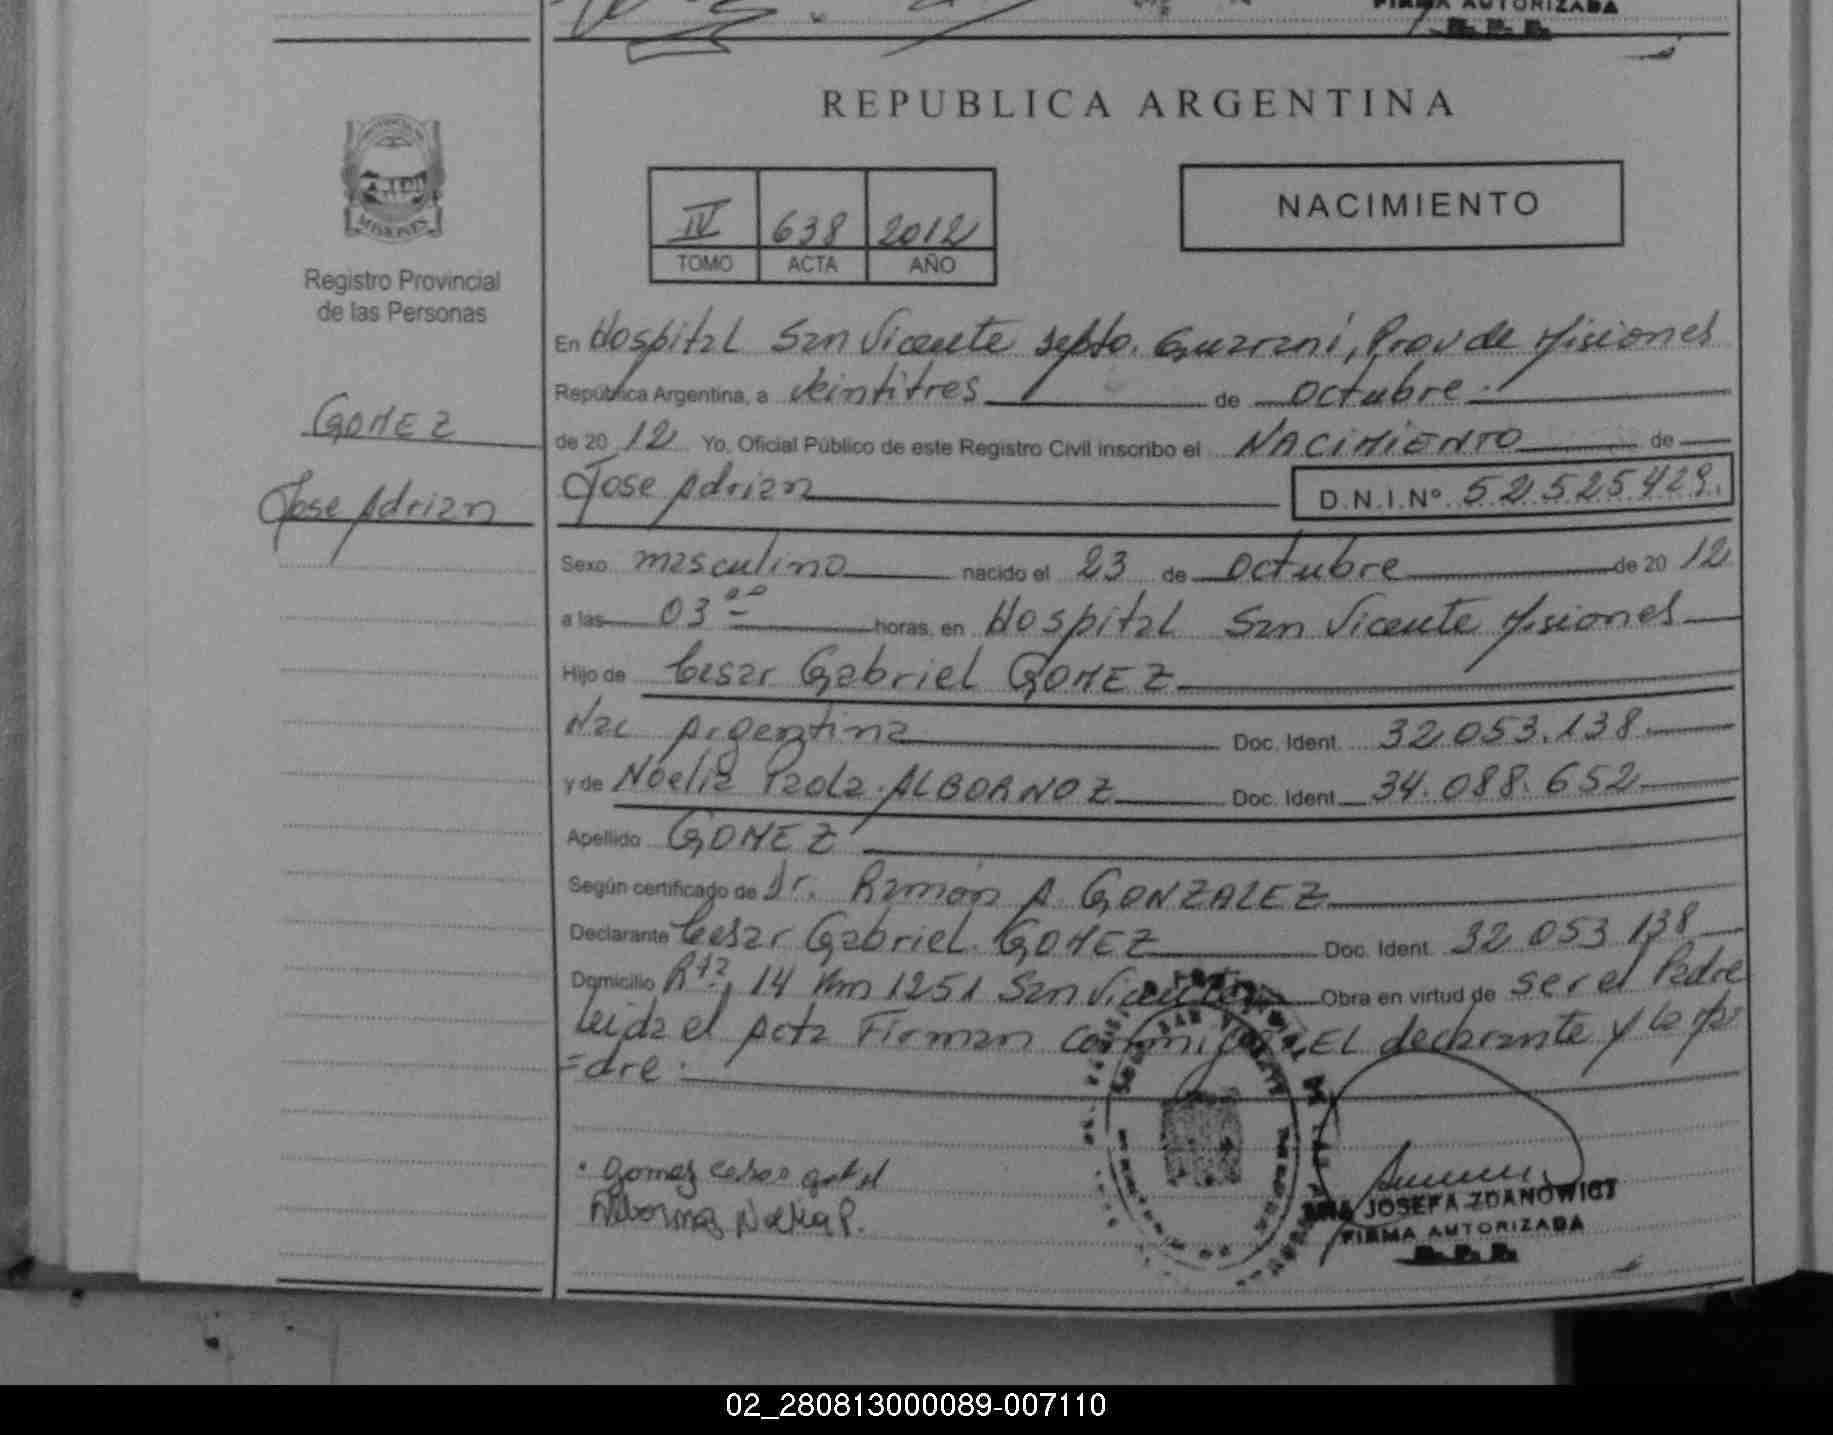 FIRMA AUTORIZADA
REPUBLICA ARGENTINA
IV 638 2012
TOMO ACTA AÑO
NACIMIENTO
MISIONES
Registro Provincial
de las Personas
GOMEZ
Jose Adrian
En Hospital San Vicente Depto. Guarani, Prov de Misiones
República Argentina, a Veintitres de Octubre.
de 20 12 Yo, Oficial Público de este Registro Civil inscribo el NACIMIENTO de
Jose Adrian D.N.I.Nº 52525429.
Sexo masculino nacido el 23 de Octubre de 20 12
a las 03 00 horas, en Hospital San Vicente Misiones
Hijo de Cesar Gabriel GOMEZ
Nac Argentina Doc. Ident. 32.053.138
y de Noelia Paola ALBORNOZ Doc. Ident. 34.088.652
Apellido GOMEZ
Según certificado de Dr. Ramón A. GONZALEZ
Declarante Cesar Gabriel GOMEZ Doc. Ident. 32 053 138
Domicilio Rta. 14 Km 1251 San Vicente Obra en virtud de ser el Padre
Leida el Acta Firman conmigo EL declarante y la Ma
=dre.
Gomez Cesar
Albornoz Noelia P.
ANA JOSEFA ZDANOWICZ
FIRMA AUTORIZADA
R. P. P.
02_280813000089-007110